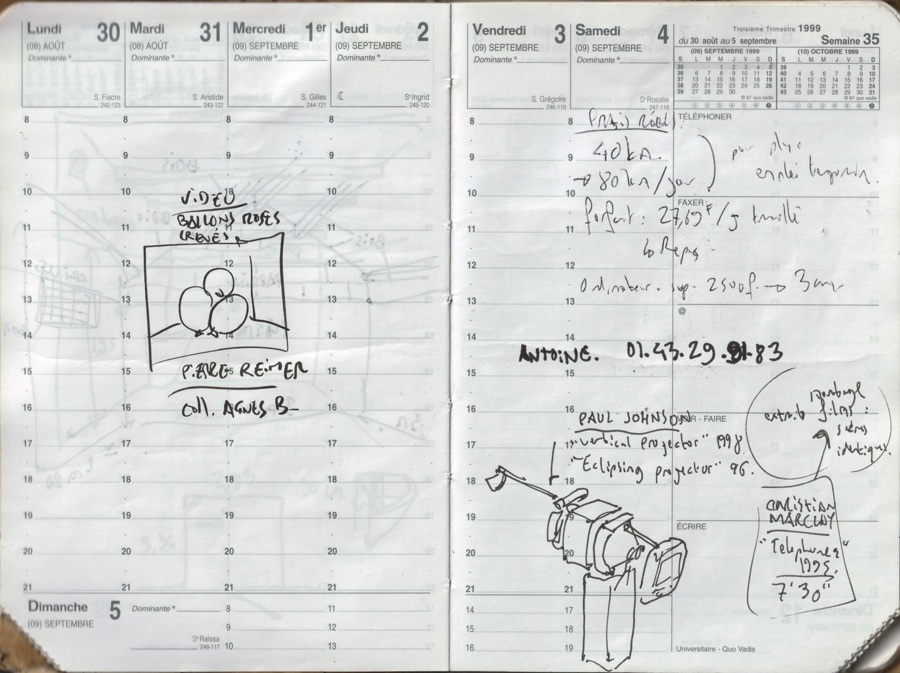 Lundi 30
(08) AOÛT
Dominante*
S. Fiacre
242-123
Mardi 31
(08) AOÛT
Dominante*
S. Aristide
243-122
Mercredi 1er
(09) SEPTEMBRE
Dominante*
S. Gilles
244-121
Jeudi 2
(09) SEPTEMBRE
Dominante*
Ste Ingrid
245-120
8
9
10
11
12
13
14
15
16
17
18
19
20
21
VIDEO
BALLONS ROSES
CREVÉS
PIERRE REIMER
Coll. AGNES B_
Dimanche 5
(09) SEPTEMBRE
Dominante*
Ste Raïssa
246-117
8 11
9 12
10 13
Vendredi 3
(09) SEPTEMBRE
Dominante*
S. Grégoire
246-119
Samedi 4
(09) SEPTEMBRE
Dominante*
Ste Rosalie
247-118
Troisième Trimestre 1999
du 30 août au 5 septembre Semaine 35
(09) SEPTEMBRE 1999 (10) OCTOBRE 1999
S L M M J V S D S L M M J V S D
35 1 2 3 4 5 39 1 2 3
36 6 7 8 9 10 11 12 40 4 5 6 7 8 9 10
37 13 14 15 16 17 18 19 41 11 12 13 14 15 16 17
38 20 21 22 23 24 25 26 42 18 19 20 21 22 23 24
39 27 28 29 30 43 25 26 27 28 29 30 31
TÉLÉPHONER
40km
→ 80 km/jour
FAXER
forfait : 27,69F/j travaillé
Repas
2500f. → 3 ans
@
ANTOINE. 01.43.29.91.83
montage
extraits films :
scènes
identiques
PAUL JOHNSON
VOIR - FAIRE
"vertical projector" 1998.
"Eclipsing projector" 96.
CHRISTIAN
MARCLAY
"Telephones"
1995.
7'30"
ÉCRIRE
8
9
10
11
12
13
14
15
16
17
18
19
20
21
14 17
15 18
16 19
Universitaire - Quo Vadis